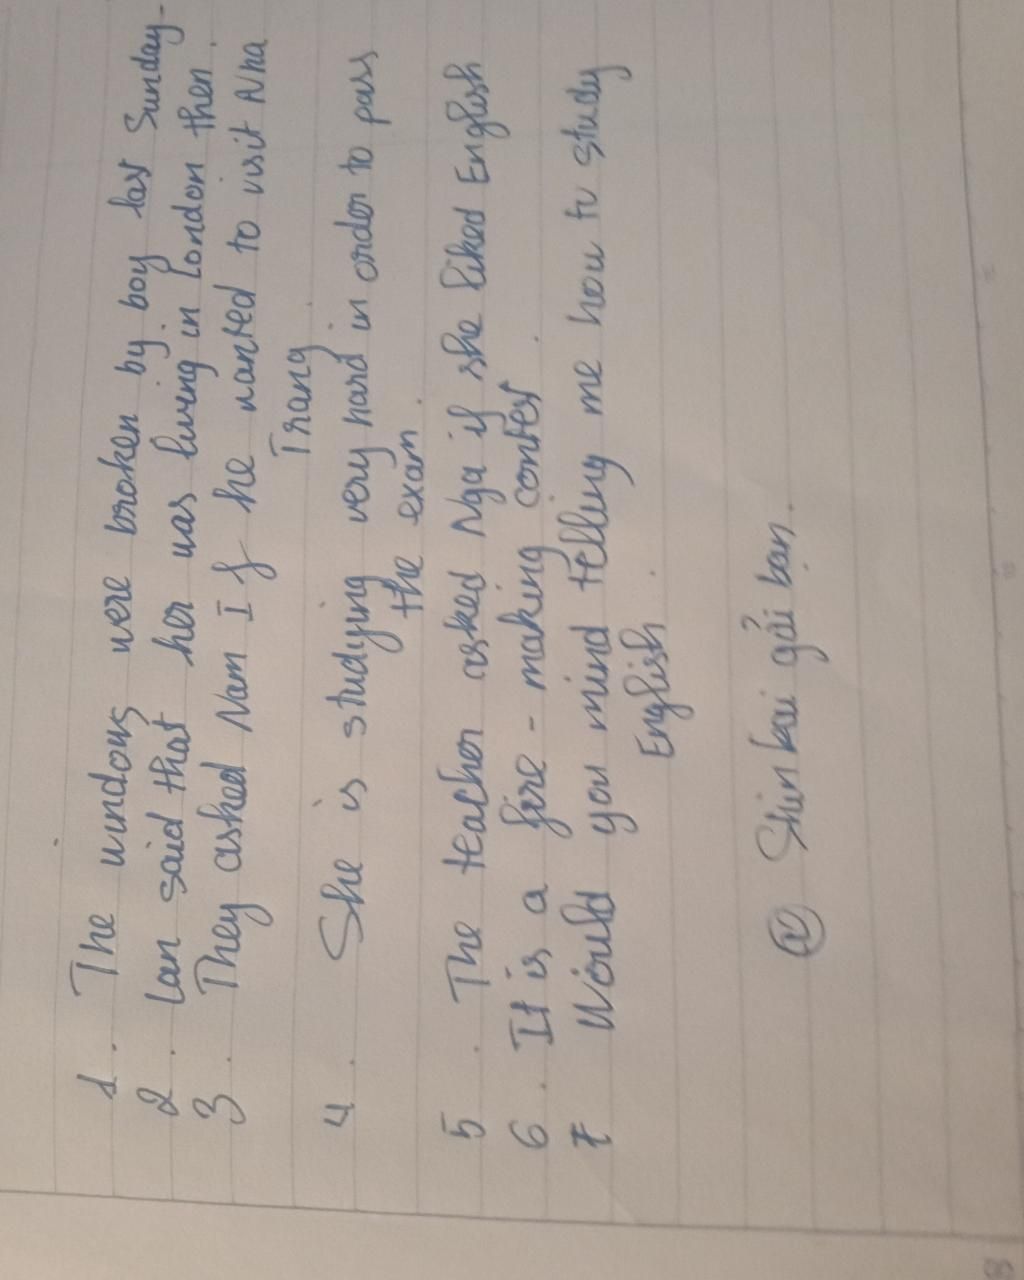 1. The windows were broken by boy last Sunday.
2. Lan said that her was living in London then.
3. They asked Nam If he wanted to visit Nha
Trang
4. She is studying very hard in order to pass
the exam.
5. The teacher asked Nga if she liked English
6. It is a fire - making contest.
7 Would you mind telling me how to study
English.
Shinkai gửi bạn.